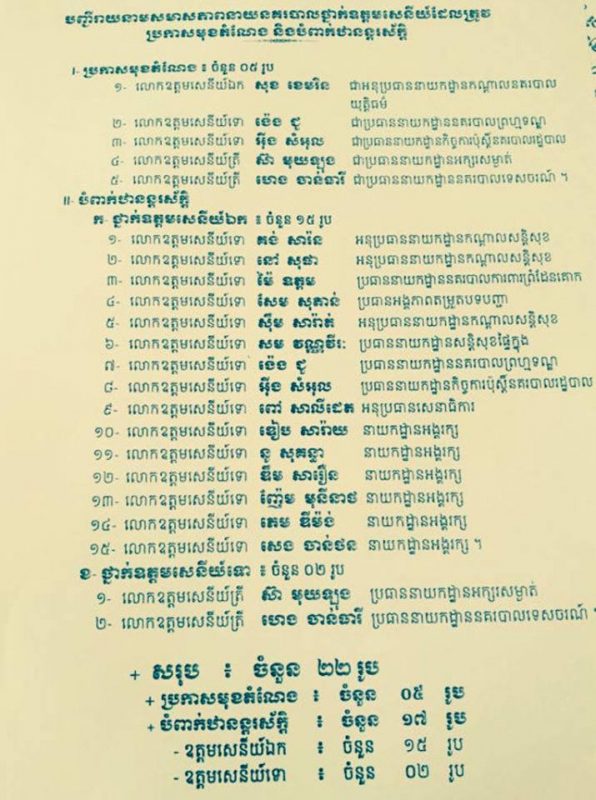 បញ្ជីរាយនាមសមាសភាពនាយនគរបាលថ្នាក់ឧត្តមសេនីយ៍ដែលត្រូវ
ប្រកាសមុខតំណែង និងបំពាក់ឋានន្តរស័ក្តិ
I- ប្រកាសមុខតំណែង ៖ ចំនួន ០៥ រូប
១- លោកឧត្តមសេនីយ៍ឯក សុខ ខេមរិន ជាអនុប្រធាននាយកដ្ឋានកណ្តាលនគរបាល
យុត្តិធម៌
២- លោកឧត្តមសេនីយ៍ទោ ង៉េង ជូ ជាប្រធាននាយកដ្ឋាននគរបាលព្រហ្មទណ្ឌ
៣- លោកឧត្តមសេនីយ៍ទោ អ៊ឹង សំអុល ជាប្រធាននាយកដ្ឋានកិច្ចការប៉ុស្តិ៍នគរបាលរដ្ឋបាល
៤- លោកឧត្តមសេនីយ៍ត្រី ស៊ា មុយឡុង ជាប្រធាននាយកដ្ឋានអក្សរសម្ងាត់
៥- លោកឧត្តមសេនីយ៍ត្រី ហេង ចាន់ធារី ជាប្រធាននាយកដ្ឋាននគរបាលទេសចរណ៍ ។
II- បំពាក់ឋានន្តរស័ក្តិ
ក- ថ្នាក់ឧត្តមសេនីយ៍ឯក ៖ ចំនួន ១៥ រូប
១- លោកឧត្តមសេនីយ៍ទោ គង់ សារ៉ន អនុប្រធាននាយកដ្ឋានកណ្តាលសន្តិសុខ
២- លោកឧត្តមសេនីយ៍ទោ នៅ សុផា អនុប្រធាននាយកដ្ឋានកណ្តាលសន្តិសុខ
៣- លោកឧត្តមសេនីយ៍ទោ ម៉ៃ ឧត្តម ប្រធាននាយកដ្ឋាននគរបាលការពារព្រំដែនគោក
៤- លោកឧត្តមសេនីយ៍ទោ សែម សុតាន់ ប្រធានអង្គភាពតម្រួតបទបញ្ជា
៥- លោកឧត្តមសេនីយ៍ទោ ស៊ឹម សារ៉ាត់ អនុប្រធាននាយកដ្ឋានកណ្តាលសន្តិសុខ
៦- លោកឧត្តមសេនីយ៍ទោ សម វណ្ណវីរៈ ប្រធាននាយកដ្ឋានសន្តិសុខផ្ទៃក្នុង
៧- លោកឧត្តមសេនីយ៍ទោ ង៉េង ជូ ប្រធាននាយកដ្ឋាននគរបាលព្រហ្មទណ្ឌ
៨- លោកឧត្តមសេនីយ៍ទោ អ៊ឹង សំអុល ប្រធាននាយកដ្ឋានកិច្ចការប៉ុស្តិ៍នគរបាលរដ្ឋបាល
៩- លោកឧត្តមសេនីយ៍ទោ ពៅ សាលីដេត អនុប្រធានសេនាធិការ
១០- លោកឧត្តមសេនីយ៍ទោ ទៀប សារ៉ាយ នាយកដ្ឋានអង្គរក្ស
១១- លោកឧត្តមសេនីយ៍ទោ នូ សុគន្ធា នាយកដ្ឋានអង្គរក្ស
១២- លោកឧត្តមសេនីយ៍ទោ ឌឹម សារឿន នាយកដ្ឋានអង្គរក្ស
១៣- លោកឧត្តមសេនីយ៍ទោ ញ៉ែម មុនីនាថ នាយកដ្ឋានអង្គរក្ស
១៤- លោកឧត្តមសេនីយ៍ទោ តេម ឌីម៉ង់ នាយកដ្ឋានអង្គរក្ស
១៥- លោកឧត្តមសេនីយ៍ទោ សេង ចាន់ថន នាយកដ្ឋានអង្គរក្ស ។
ខ- ថ្នាក់ឧត្តមសេនីយ៍ទោ ៖ ចំនួន ០២ រូប
១- លោកឧត្តមសេនីយ៍ត្រី ស៊ា មុយឡុង ប្រធាននាយកដ្ឋានអក្សរសម្ងាត់
២- លោកឧត្តមសេនីយ៍ត្រី ហេង ចាន់ធារី ប្រធាននាយកដ្ឋាននគរបាលទេសចរណ៍ ។
+ សរុប ៖ ចំនួន ២២ រូប
+ ប្រកាសមុខតំណែង ៖ ចំនួន ០៥ រូប
+ បំពាក់ឋានន្តរស័ក្តិ ៖ ចំនួន ១៧ រូប
- ឧត្តមសេនីយ៍ឯក ៖ ចំនួន ១៥ រូប
- ឧត្តមសេនីយ៍ទោ ៖ ចំនួន ០២ រូប